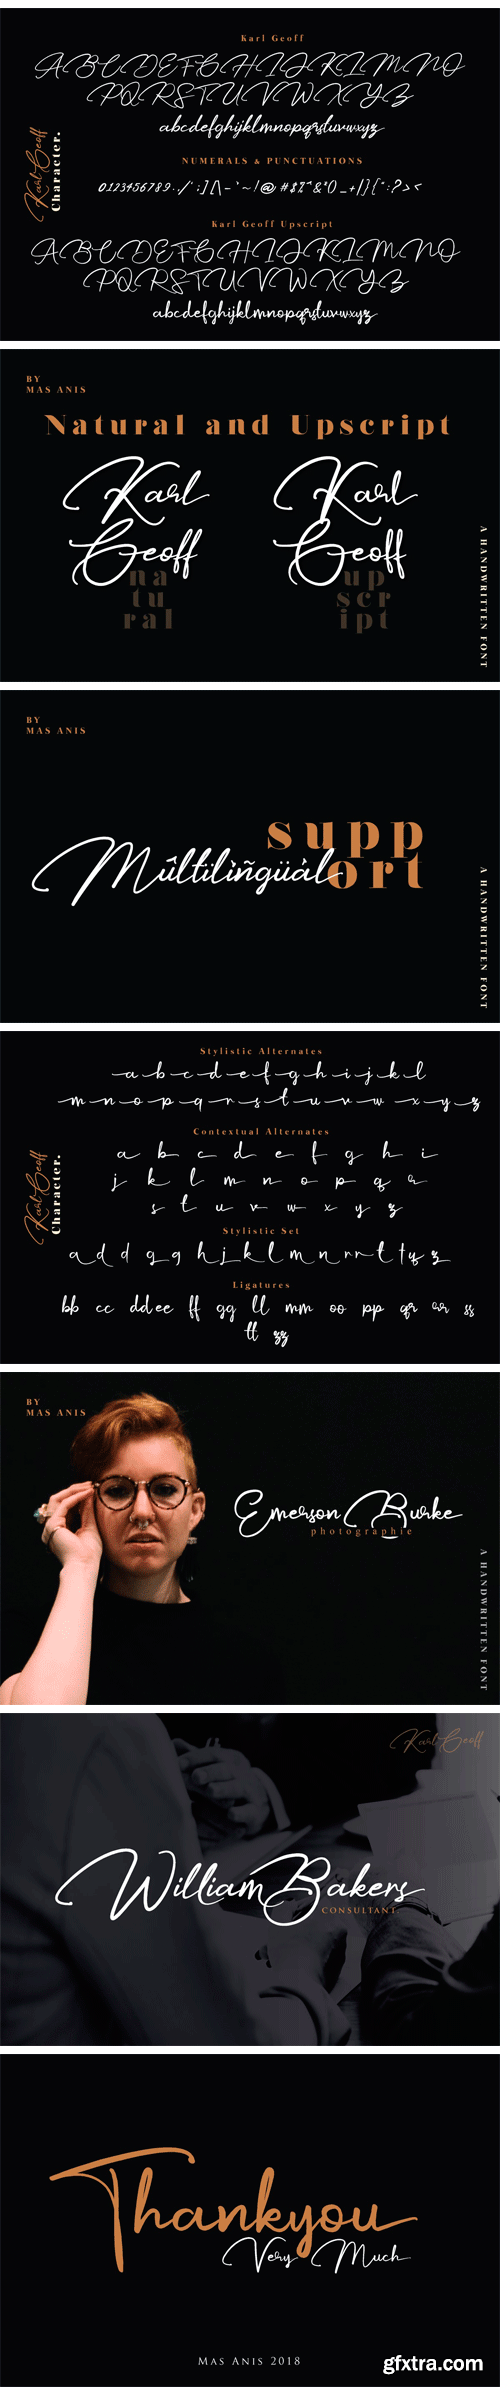 Karl Geoff
ABCDEFGHIJKLMNO
PQRSTUVWXYZ
abcdefghijklmnopqrstuvwxyz
Karl Geoff
Character.
NUMERALS & PUNCTUATIONS
Karl Geoff Upscript
ABCDEFGHIJKLMNO
PQRSTUVWXYZ
abcdefghijklmnopqrstuvwxyz
BY
MAS ANIS
Natural and Upscript
Karl
Geoff
na
tu
ral
Karl
Geoff
up
scr
ipt
A HANDWRITTEN FONT
BY
MAS ANIS
supp
ort
A HANDWRITTEN FONT
Stylistic Alternates
a b c d e f g h i j k l
m n o p q r s t u v w x y z
Contextual Alternates
a b c d e f g h i
j k l m n o p q r
s t u v w x y z
Karl Geoff
Character.
Stylistic Set
Ligatures
bb cc dd ee ff gg ll mm oo pp qr rr ss
tt zz
BY
MAS ANIS
Emerson Burke
photographie
A HANDWRITTEN FONT
Karl Geoff
William Bakers
CONSULTANT.
Thankyou
Very Much
MAS ANIS 2018
gfxtra.com